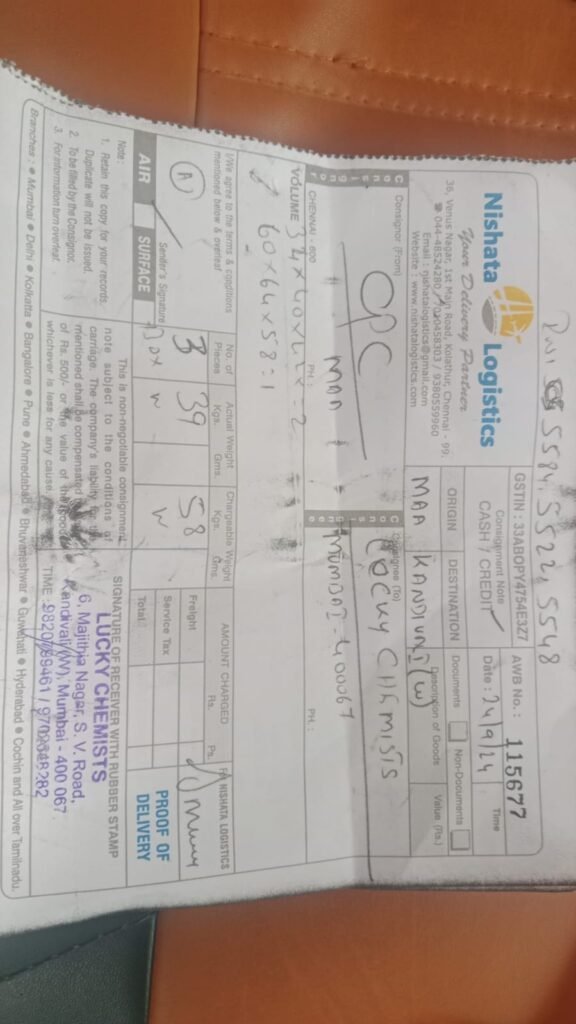 5584, 5522, 5548
Nishata Logistics
Your Delivery Partner
36, Venus Nagar, 1st Main Road, Kolathur, Chennai - 99.
044-48524280 / 9380559960
Email : nishatalogistics@gmail.com
Website : www.nishatalogistics.com
GSTIN : 33ABOPY4754E3Z7
AWB No. : 115677
Consignment Note
CASH / CREDIT
Date : 24/9/24
Time
ORIGIN
DESTINATION
Documents
Non-Documents
MAA
KANDIVALI (W)
Description of Goods
Value (Rs.)
Consignor
Consignor (From)
CPC
MAA
CHENNAI - 600
PH. :
Consignee
Consignee (To)
LUCKY CHEMISTS
MUMBAI - 400067
PH. :
VOLUME
60 x 64 x 58 = 1
I/We agree to the terms & conditions
mentioned below & overleaf
No. of
Pieces
Actual Weight
Kgs.
Gms.
Chargeable Weight
Kgs.
Gms.
AMOUNT CHARGED
Rs.
Ps.
For NISHATA LOGISTICS
A
Sender's Signature
3
39
58
Freight
Service Tax
Total
AIR
SURFACE
PROOF OF
DELIVERY
Note:
1. Retain this copy for your records.
Duplicate will not be issued.
2. To be filled by the Consignor.
3. For information turn overleaf.
This is non-negotiable consignment
note subject to the conditions of
carriage. The company's liability
mentioned shall be compensated
of Rs. 500/- or the value of the goods
whichever is less for any cause
SIGNATURE OF RECEIVER WITH RUBBER STAMP
LUCKY CHEMISTS
6, Majithia Nagar, S. V. Road,
Kandivali (W), Mumbai - 400 067.
TIME
Branches : • Mumbai • Delhi • Kolkatta • Bangalore • Pune • Ahmedabad • Bhuvaneshwar • Guwahati • Hyderabad • Cochin and All over Tamilnadu.